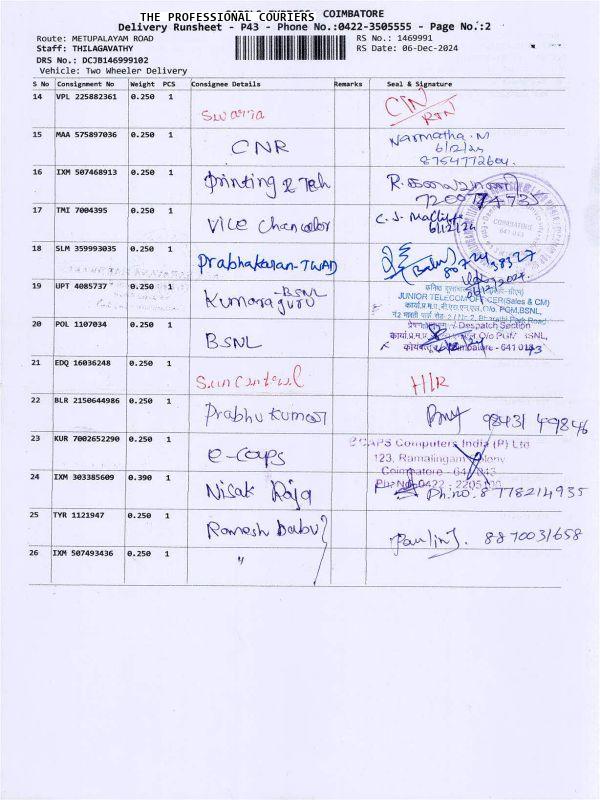 THE PROFESSIONAL COURIERS COIMBATORE
Delivery Runsheet - P43 - Phone No.:0422-3505555 - Page No.:2
Route: METUPALAYAM ROAD
RS No.: 1469991
Staff: THILAGAVATHY
RS Date: 06-Dec-2024
DRS No.: DCJB146999102
Vehicle: Two Wheeler Delivery
S No Consignment No Weight PCS Consignee Details Remarks Seal & Signature
14 VPL 225882361 0.250 1
15 MAA 575897036 0.250 1 CNR Narmatha.M
6/12/24
8754772604
16 IXM 507468913 0.250 1 Printing & Tech
17 TMI 7004395 0.250 1 Vice Chancellor C. J.
6/12/24
COIMBATORE
641 043
18 SLM 359993035 0.250 1 Prabhakaran-TWAD
19 UPT 4085737 0.250 1 Kumaraguru -BSNL
JUNIOR TELECOM OFFICER(Sales & CM)
O/o. PGM,BSNL,
20 POL 1107034 0.250 1 BSNL
Despatch Section
O/o PGM BSNL,
Coimbatore - 641 043
21 EDQ 16036248 0.250 1 H/R
22 BLR 2150644986 0.250 1 Prabhu Kumar 98431 49846
23 KUR 7002652290 0.250 1 e-caps
eCAPS Computers India (P) Ltd
123, Ramalingam Colony
Coimbatore - 641 043
24 IXM 303385609 0.390 1 Nisak Raja
Ph.no: 8778214935
25 TYR 1121947 0.250 1 Ramesh babu 8870031658
26 IXM 507493436 0.250 1 "